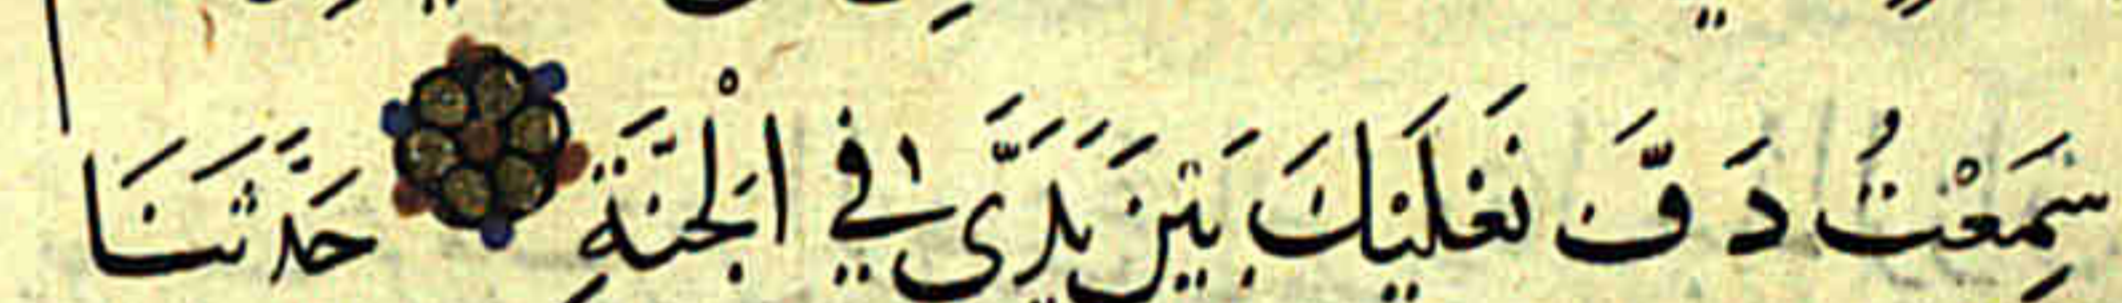 سَمِعْتُ دَفَّ نَعْلَيْكَ بَيْنَ يَدَيَّ فِي الْجَنَّةِ حَدَّثَنَا